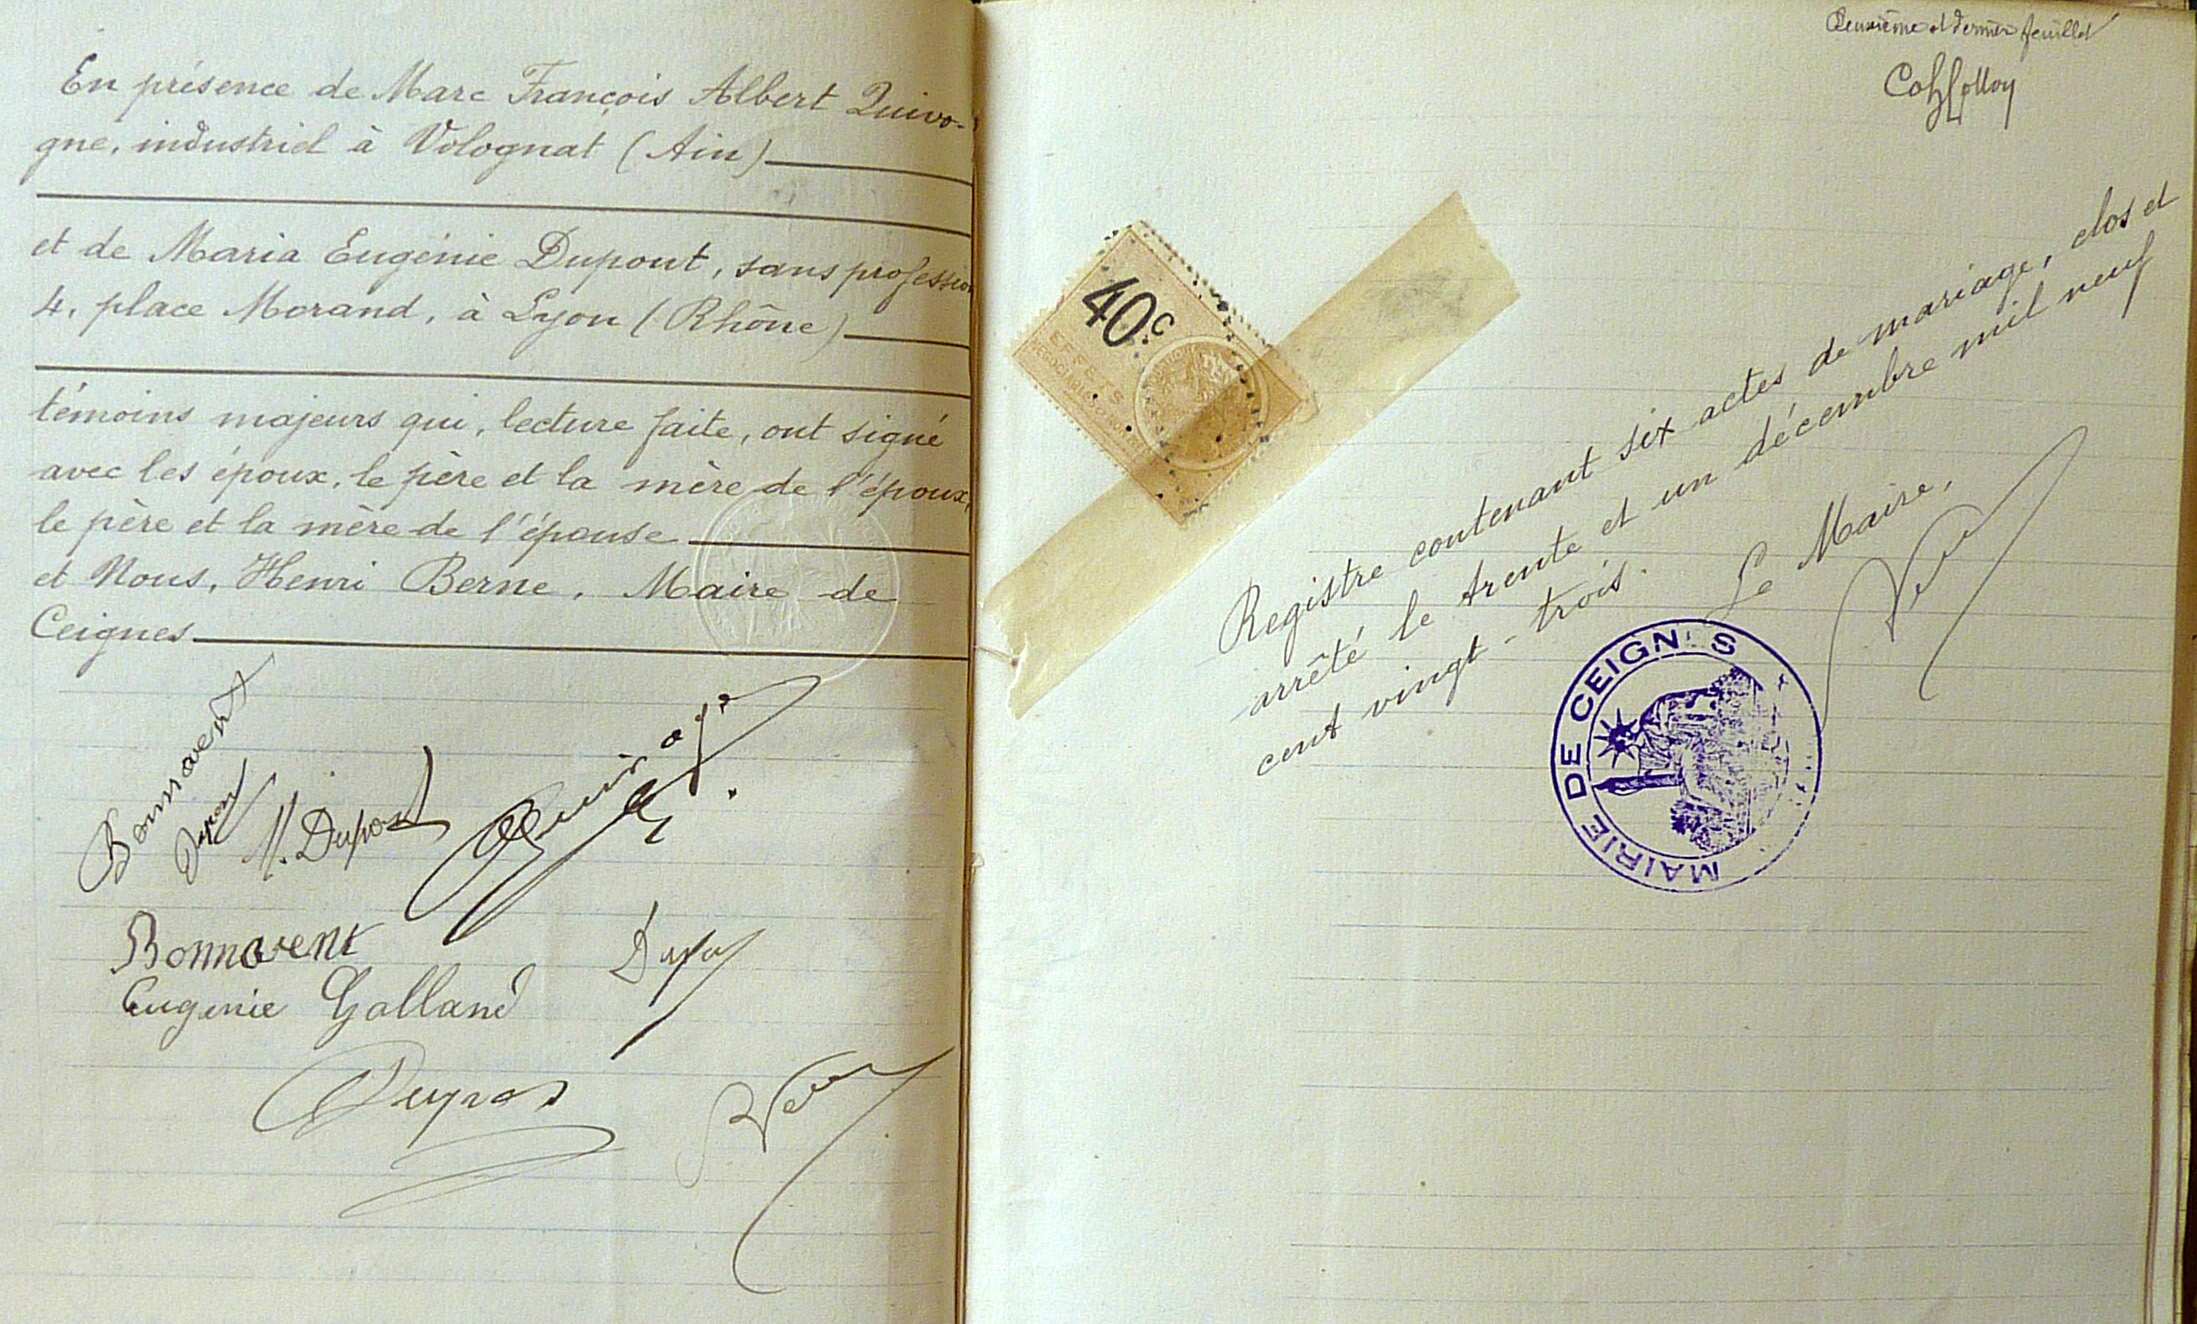 En présence de Marc François Albert Quivo-
gne, industriel à Volognat (Ain)
et de Maria Eugénie Dupont, sans profession
4, place Morand, à Lyon (Rhône)
témoins majeurs qui, lecture faite, ont signé
avec les époux, le père et la mère de l'époux,
le père et la mère de l'épouse
et Nous, Henri Berne, Maire de
Ceignes
Bonnavent
M. Dupont
Bonnavent
Eugenie Golland
Deuxième et dernier feuillet
40c
EFFETS
Registre contenant six actes de mariage, clos et
arrêté le trente et un décembre mil neuf
cent vingt-trois.
Le Maire,
MAIRIE DE CEIGN S